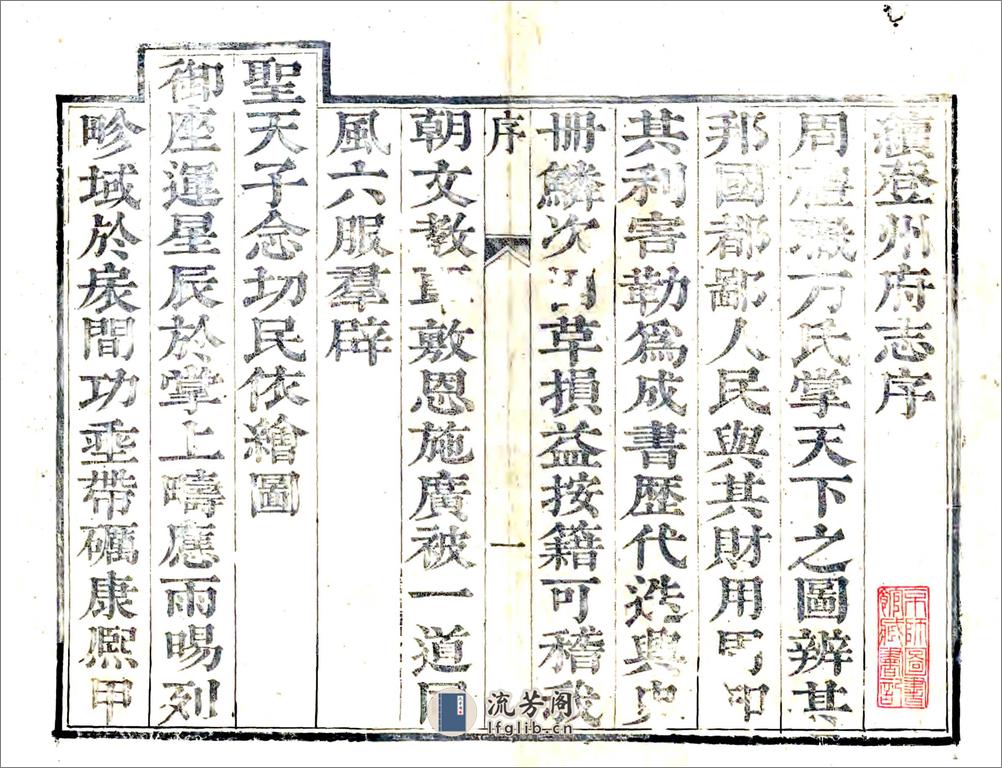 續登州府志序
周禮職方氏掌天下之圖辨其
邦國都鄙人民與其財用
其利害勒爲成書歴代迭興史
冊鱗次革損益按籍可稽我
序 一
朝文教敷恩施廣被一道同
風六服羣辟
聖天子念切民依繪圖
御座運星辰於掌上疇應雨暘列
畛域於扆間功埀帶礪康熙甲
京師圖書
館藏書記
流芳阁
lfglib.cn